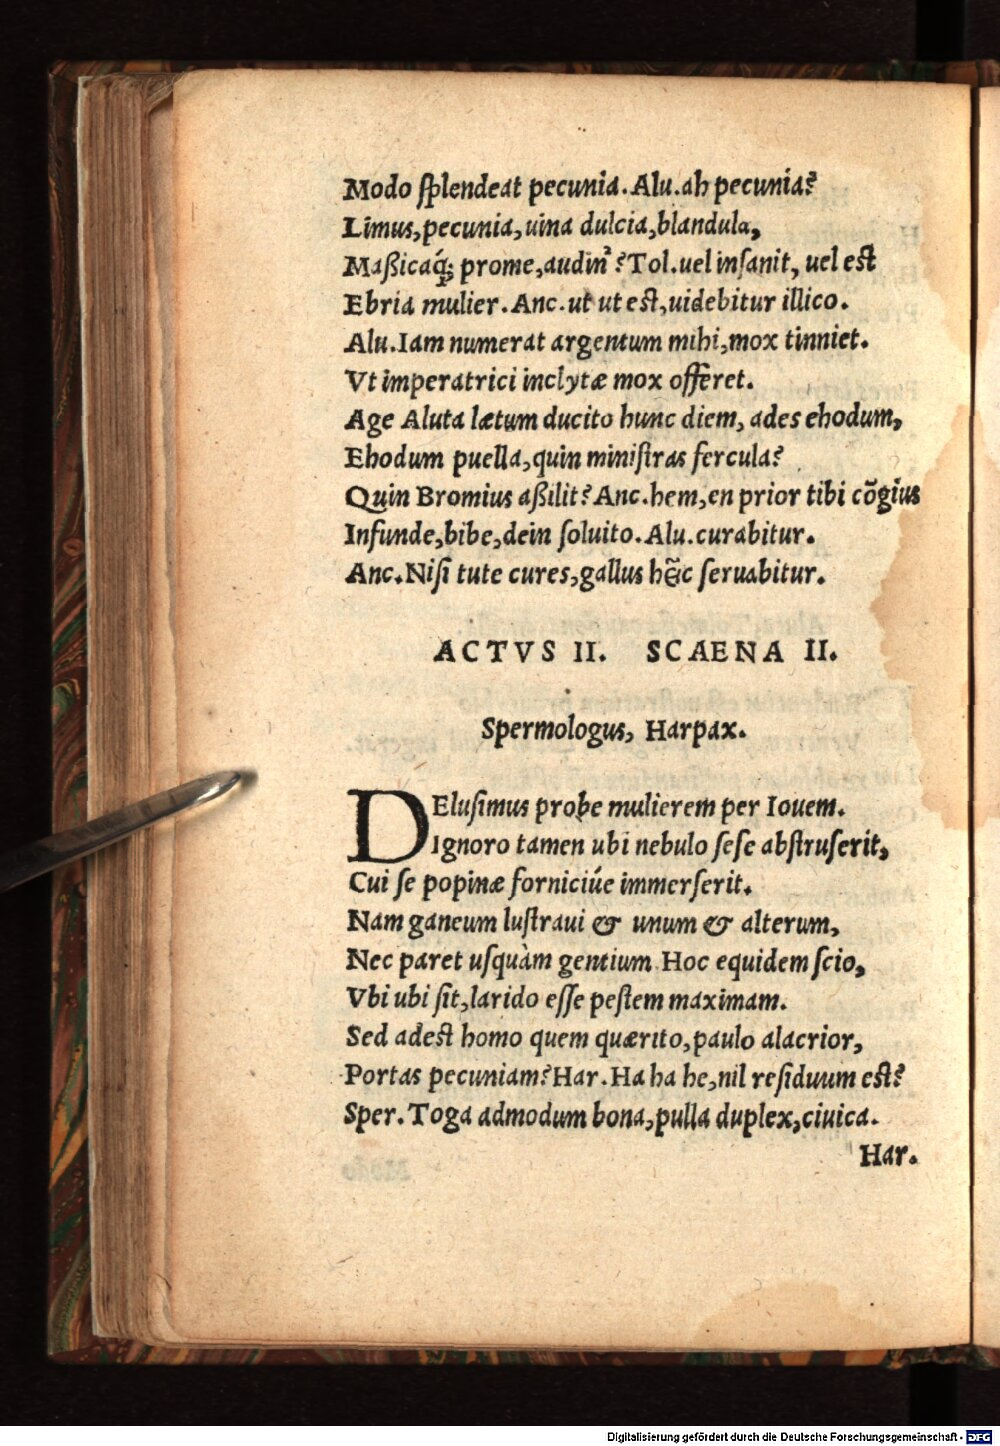 Modo splendeat pecunia. Alu. ah pecunia?
Limus, pecunia, uina dulcia, blandula,
Maßicaq́; prome, audin'? Tol. uel insanit, uel est
Ebria mulier. Anc. ut ut est, uidebitur illico.
Alu. Iam numerat argentum mihi, mox tinniet.
Vt imperatrici inclytæ mox offeret.
Age Aluta lætum ducito hunc diem, ades ehodum,
Ehodum puella, quin ministras fercula?
Quin Bromius aßilit? Anc. hem, en prior tibi cõgius
Infunde, bibe, dein soluito. Alu. curabitur.
Anc. Nisi tute cures, gallus hęc seruabitur.
ACTVS II. SCAENA II.
Spermologus, Harpax.
DElusimus probe mulierem per Iouem.
Ignoro tamen ubi nebulo sese abstruserit,
Cui se popinæ forniciúe immerserit.
Nam ganeum lustraui & unum & alterum,
Nec paret usquàm gentium Hoc equidem scio,
Vbi ubi sit, larido esse pestem maximam.
Sed adest homo quem quærito, paulo alacrior,
Portas pecuniam? Har. Ha ha he, nil residuum est?
Sper. Toga admodum bona, pulla duplex, ciuica.
Har.
Digitalisierung gefördert durch die Deutsche Forschungsgemeinschaft - DFG